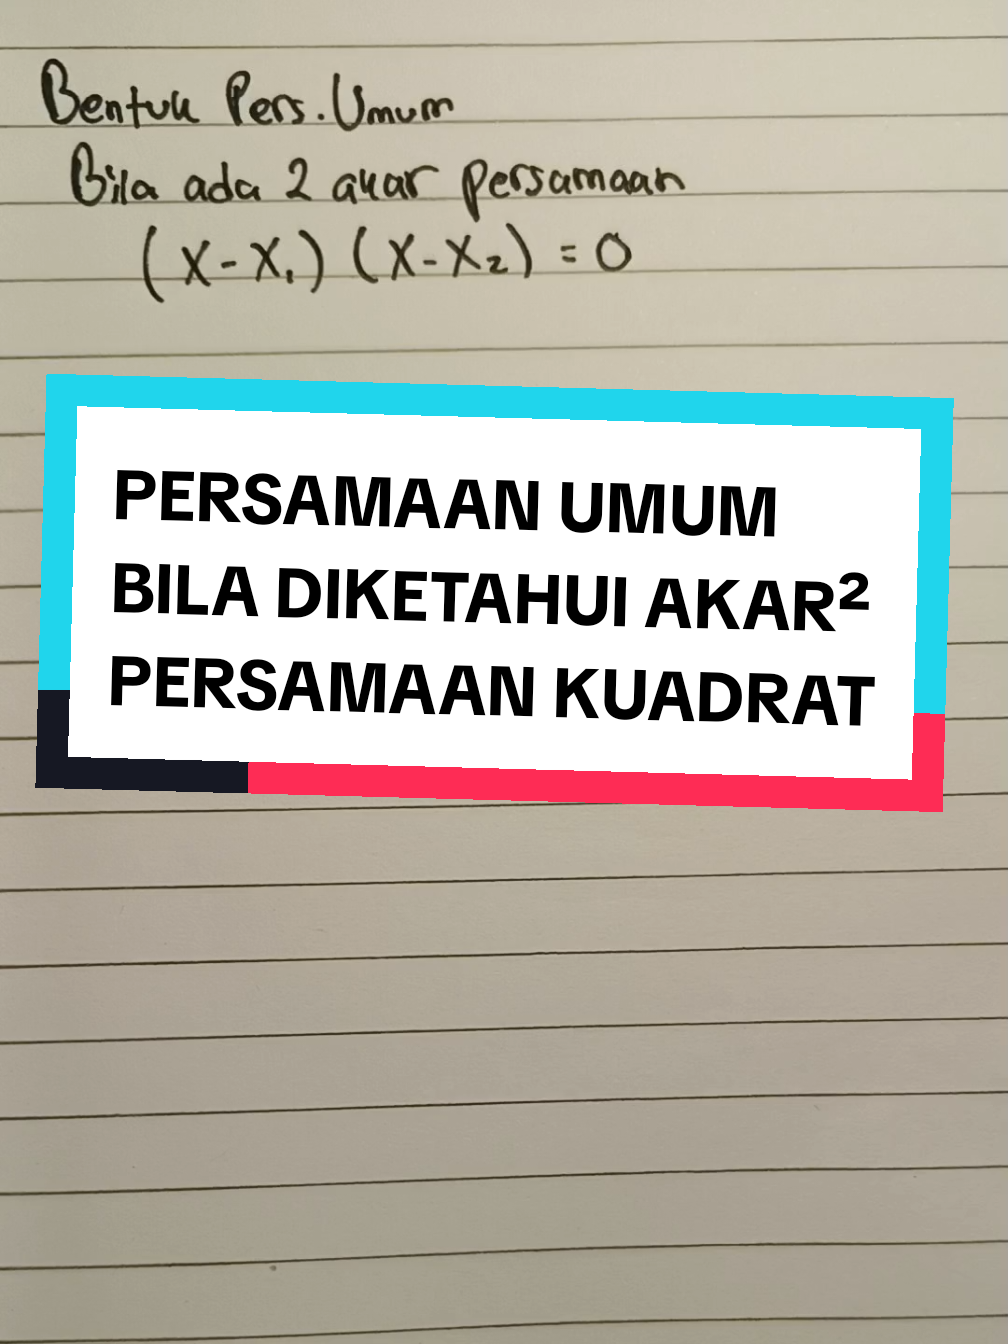 Bentuk Pers. Umum
Bila ada 2 akar persamaan
(x-x₁) (x-x₂) = 0
PERSAMAAN UMUM
BILA DIKETAHUI AKAR²
PERSAMAAN KUADRAT